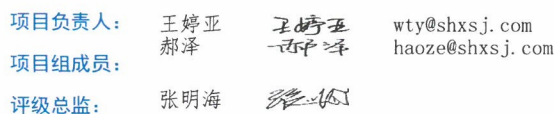 项目负责人： 王婷亚 王婷亚 wty@shxsj.com
郝泽 郝泽 haoze@shxsj.com
项目组成员：
评级总监： 张明海